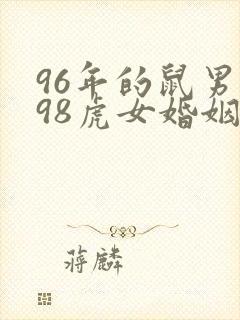 96年的鼠男
98虎女婚姻
蒋麟